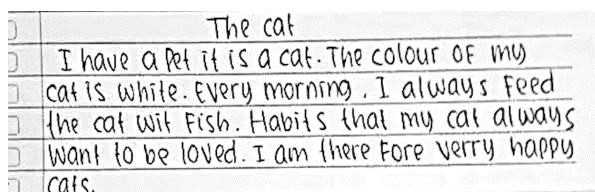 The cat
I have a Pet it is a cat. The colour of my
cat is white. Every morning. I always feed
the cat wit Fish. Habits that my cat always
want to be loved. I am there Fore verry happy
cats.